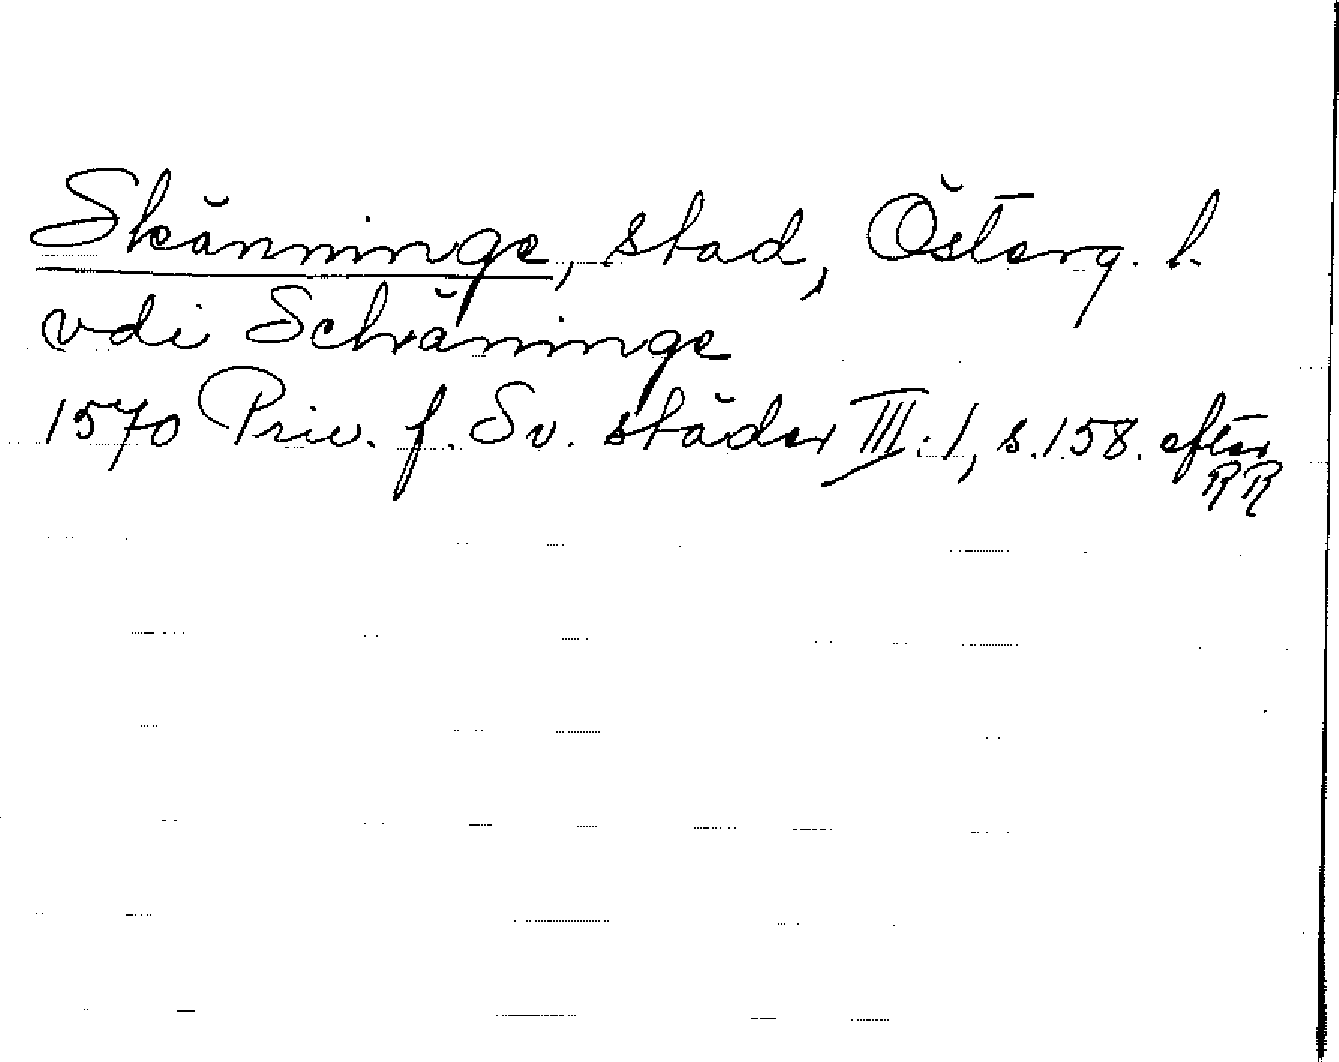 Skänninge, stad, Österg. l.
vdi Schäninge
1570 Priv. f. Sv. städer III:1, s. 158. efter
RR